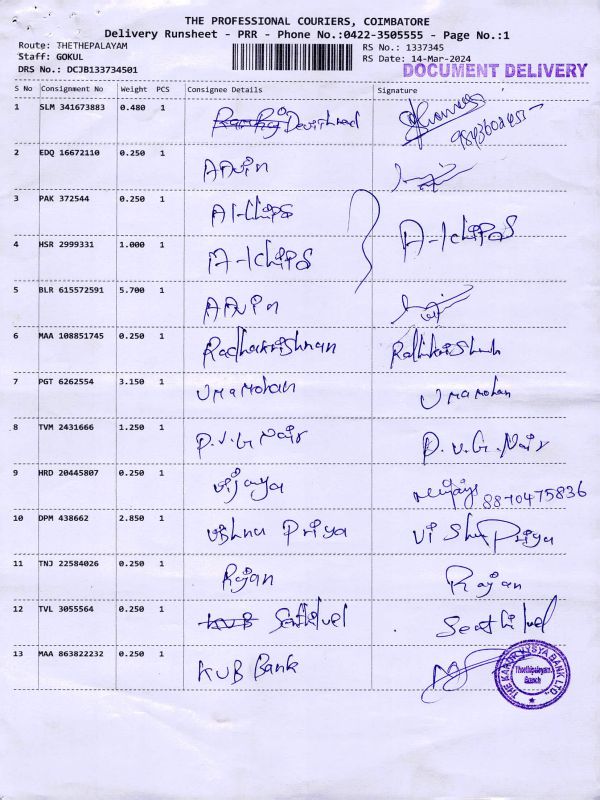 THE PROFESSIONAL COURIERS, COIMBATORE
Delivery Runsheet - PRR - Phone No.:0422-3505555 - Page No.:1
Route: THETHEPALAYAM RS No.: 1337345
Staff: GOKUL RS Date: 14-Mar-2024
DRS No.: DCJB133734501 DOCUMENT DELIVERY
S No Consignment No Weight PCS Consignee Details Signature
1 SLM 341673883 0.480 1
2 EDQ 16672110 0.250 1 AAvin
3 PAK 372544 0.250 1 A1-Chips
4 HSR 2999331 1.000 1 A-1chips A-1chips
5 BLR 615572591 5.700 1 AAvin
6 MAA 108851745 0.250 1 Radhakrishnan
7 PGT 6262554 3.150 1 Uma Mohan Uma Mohan
8 TVM 2431666 1.250 1 P.V.G. Nair P.V.G. Nair
9 HRD 20445807 0.250 1 Vijaya 8870475836
10 DPM 438662 2.850 1 Vishnu Priya Vishnu Priya
11 TNJ 22584026 0.250 1 Rajan Rajan
12 TVL 3055564 0.250 1 KVB Senthilvel Senthilvel
13 MAA 863822232 0.250 1 KVB Bank
THE KARUR VYSYA BANK LTD.
Thethipalayam
Branch